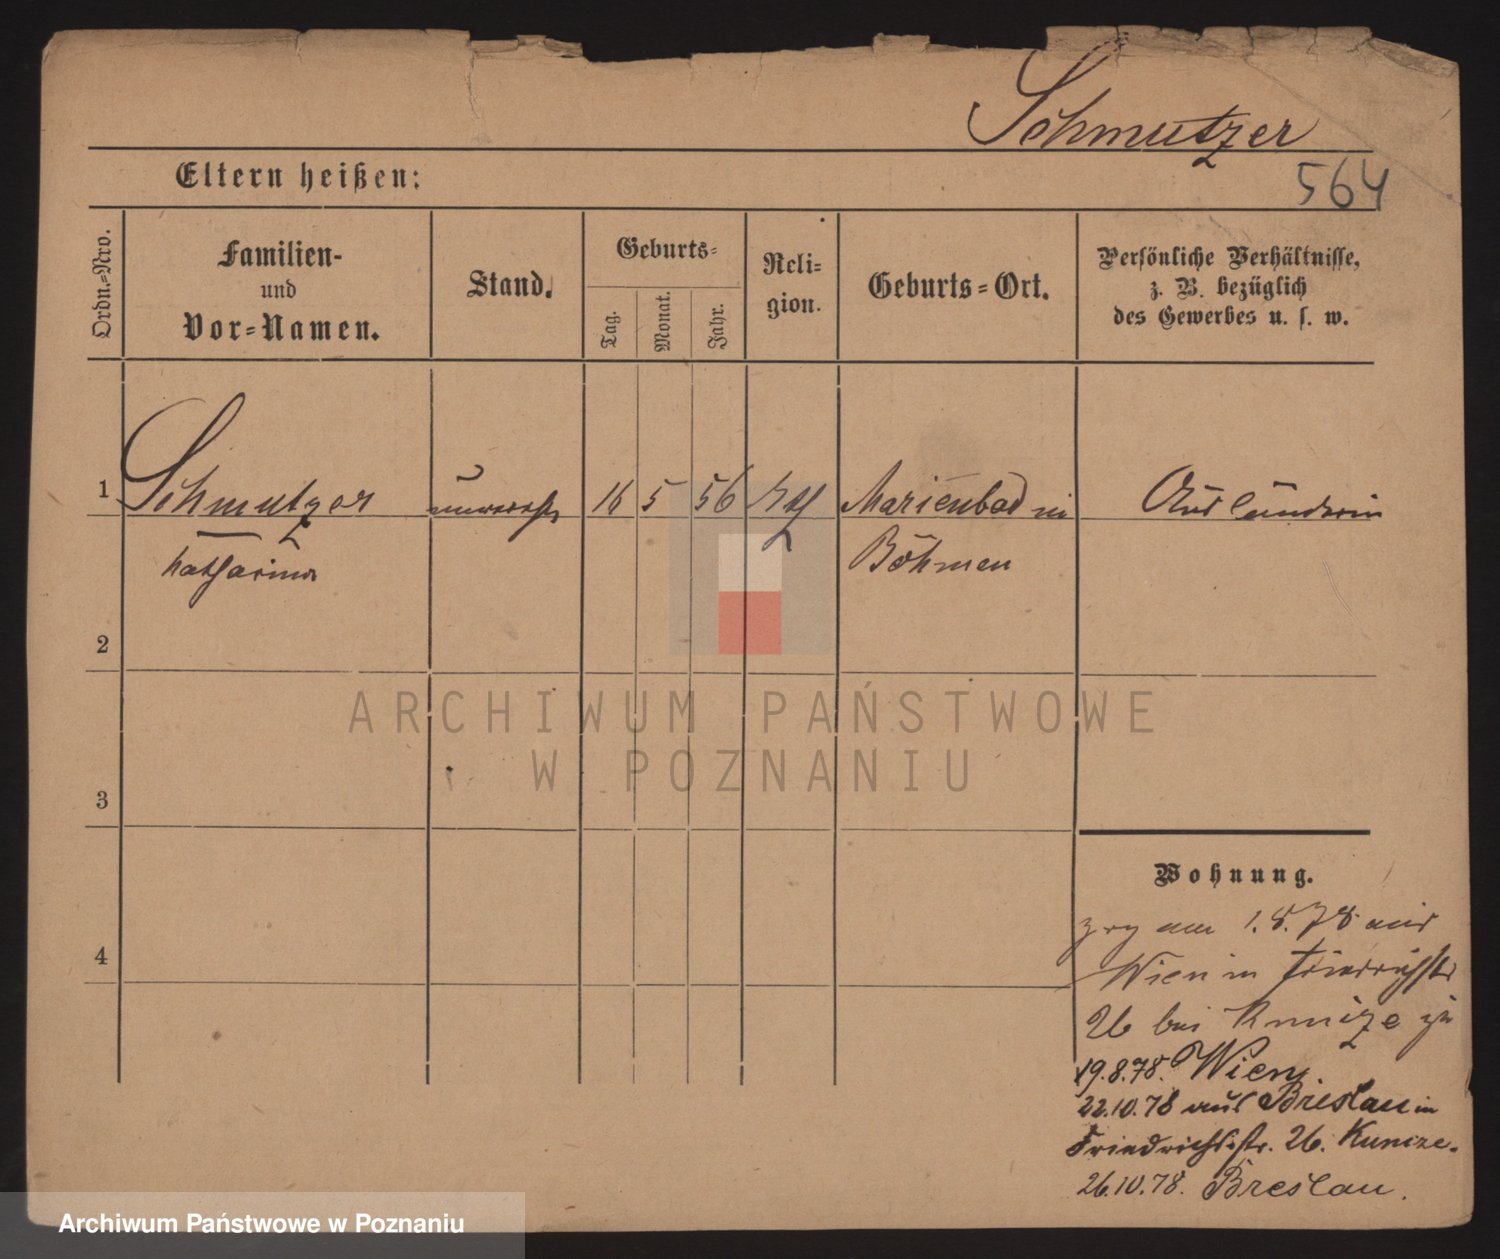 Schmutzer
Eltern heißen:
564
Ordn.-Nro.
Familien-
und
Vor-Namen.
Stand.
Geburts-
Tag.
Monat.
Jahr.
Reli-
gion.
Geburts-Ort.
Persönliche Verhältnisse,
z. B. bezüglich
des Gewerbes u. s. w.
1
Schmutzer
unvereh
16
5
56
kth
Marienbad in
Ausländerin
Katharina
Böhmen
2
3
4
Wohnung.
zog am 1.8.78 aus
Wien in Friedrichstr
26 bei Kunize
19.8.78. Wien.
22.10.78 aus Breslau in
Friedrichsstr. 26. Kunize.
26.10.78. Breslau.
ARCHIWUM PAŃSTWOWE
W POZNANIU
Archiwum Państwowe w Poznaniu